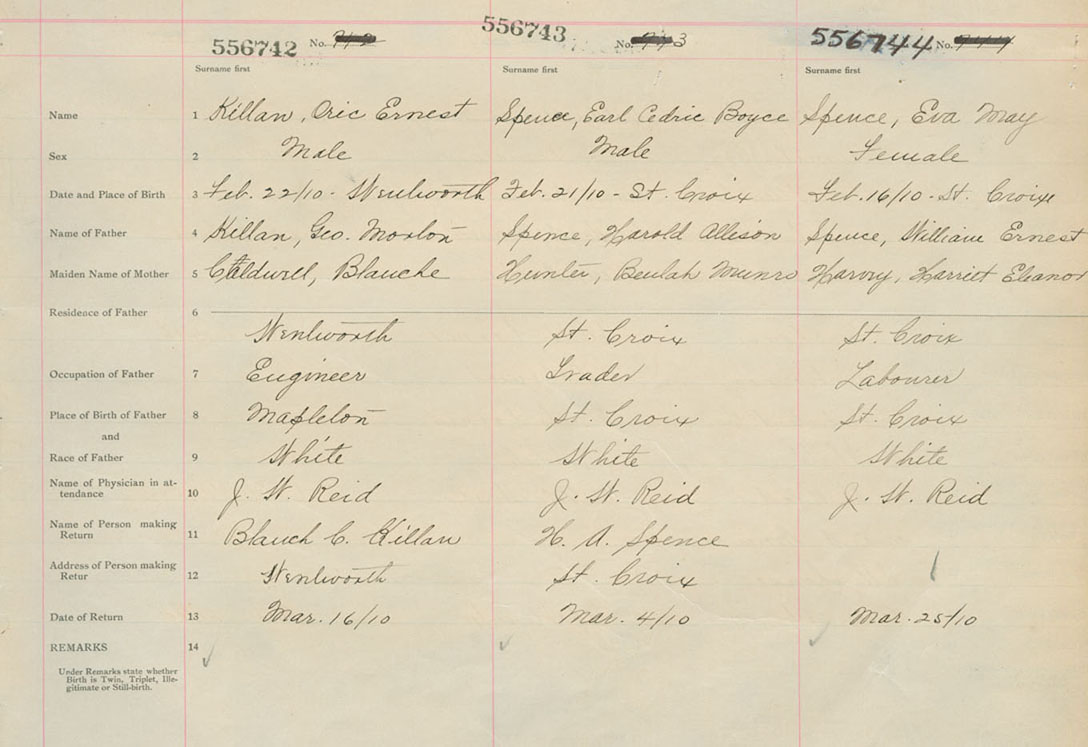 556742 No.
556743 No. 3
556744 No.
Surname first Surname first Surname first
Name 1 Killan, Oric Ernest Spence, Earl Cedric Boyce Spence, Eva May
Sex 2 Male Male Female
Date and Place of Birth 3 Feb. 22/10 - Wentworth Feb. 21/10 - St. Croix Feb. 16/10 - St. Croix
Name of Father 4 Killan, Geo. Spence, Harold Allison Spence, William Ernest
Maiden Name of Mother 5 Caldwell, Blauche Hunter, Beulah Munro Harvey, Harriet Eleanor
Residence of Father 6
Wentworth St. Croix St. Croix
Occupation of Father 7 Engineer Trader Labourer
Place of Birth of Father 8 Mapleton St. Croix St. Croix
and
Race of Father 9 White White White
Name of Physician in at-
tendance 10 J. W. Reid J. W. Reid J. W. Reid
Name of Person making
Return 11 Blauch C. Killan H. A. Spence
Address of Person making
Retur 12 Wentworth St. Croix
Date of Return 13 Mar. 16/10 Mar. 4/10 Mar. 25/10
REMARKS 14
Under Remarks state whether
Birth is Twin, Triplet, Ille-
gitimate or Still-birth.